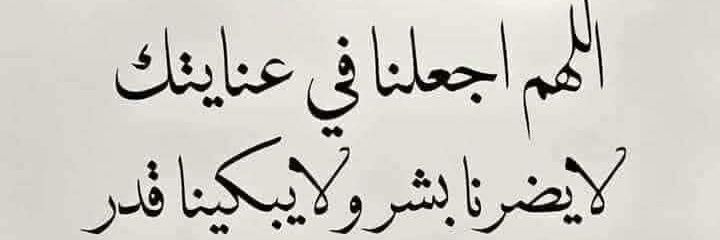 اللهم اجعلنا في عنايتك
لا يضرنا بشر ولا يبكينا قدر